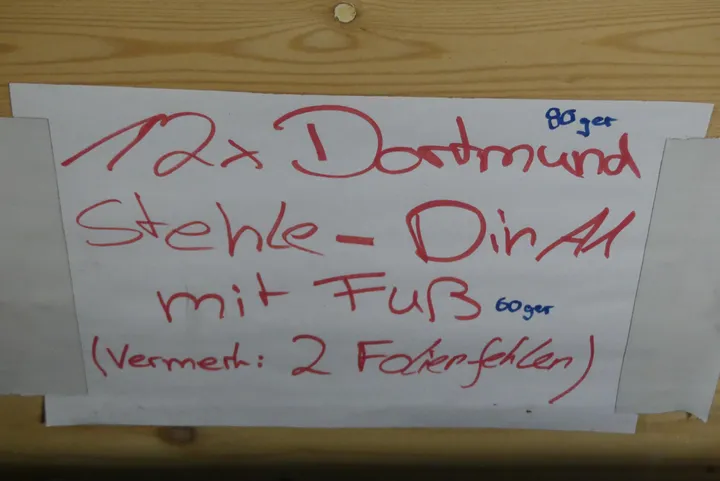 80ger
12x Dortmund
Stehle - Din A1
mit Fuß 60ger
(Vermerk: 2 Folien fehlen)